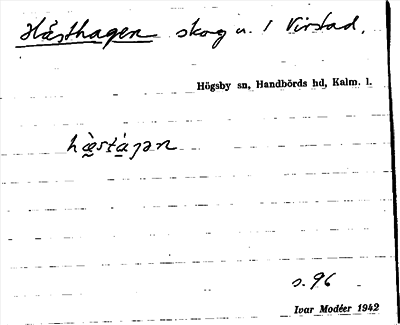 Hästhagen skog u. 1 Virstad.
Högsby sn, Handbörds hd, Kalm. l.
hæ̀stáɡən
s. 96
Ivar Modéer 1942